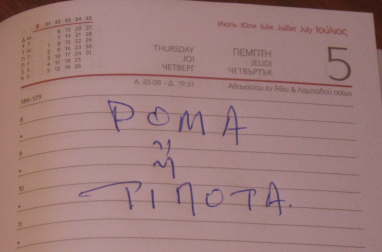 Июль Юли Iulie Juillet July Ιούλιος
THURSDAY
JOI
ЧЕТВЕРГ
ΠΕΜΠΤΗ
JEUDI
ЧЕТВЪРТЪК
5
Α. 05:08 - Δ. 19:51
Αθανασίου εν Άθω & Λαμπαδού οσίων
186-179
8
9
10
11
ΡΟΜΑ
ή
ΤΙΠΟΤΑ.